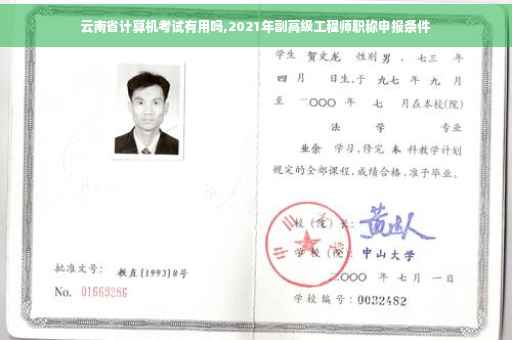 云南省计算机考试有用吗,2021年副高级工程师职称申报条件
学生 贺文龙 性别 男 、七三 年
四 月 日生,于 九七 年 九 月
至 二〇〇〇 年 七 月在本校(院)
法 学 专业
业余 学习,修完 本 科教学计划
规定的全部课程,成绩合格,准予毕业。
校(院)长:
学校(院) 中山大学
二〇〇〇 年 七 月 一 日
批准文号: 教直[1993]8号
No. 01669286
学校编号:0032482